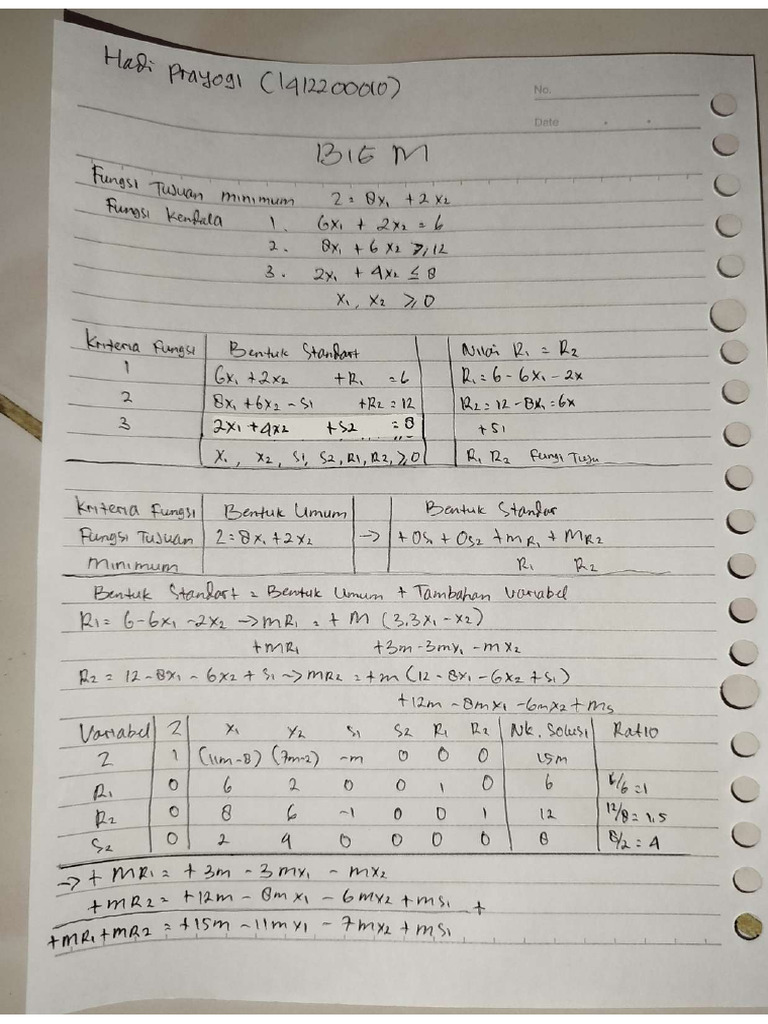 Hadi Prayogi (1412200010)
No.
Date
BIG M
Fungsi Tujuan minimum Z = 8x1 + 2x2
Fungsi Kendala 1. 6x1 + 2x2 = 6
2. 8x1 + 6x2 ≥ 12
3. 2x1 + 4x2 ≤ 8
x1, x2 ≥ 0
Kriteria Fungsi Bentuk Standart Nilai R1 = R2
1 6x1 + 2x2 + R1 = 6 R1 = 6 - 6x1 - 2x
2 8x1 + 6x2 - S1 + R2 = 12 R2 = 12 - 8x1 = 6x
3 2x1 + 4x2 + S2 = 8 + S1
x1, x2, S1, S2, R1, R2, ≥ 0 R1 R2 Fungi Tuju
Kriteria Fungsi Bentuk Umum Bentuk Standar
Fungsi Tujuan Z = 8x1 + 2x2 -> + 0S1 + 0S2 + mR1 + MR2
Minimum R1 R2
Bentuk Standart = Bentuk Umum + Tambahan variabel
R1 = 6 - 6x1 - 2x2 -> mR1 = + M (3.3x1 - x2)
+ mR1 + 3m - 3mx1 - mx2
R2 = 12 - 8x1 - 6x2 + S1 -> mR2 = + m (12 - 8x1 - 6x2 + S1)
+ 12m - 8mx1 - 6mx2 + ms
Variabel Z x1 x2 S1 S2 R1 R2 Nk. Solusi Ratio
Z 1 (11m-8) (7m-2) -m 0 0 0 15m
R1 0 6 2 0 0 1 0 6 6/6 = 1
R2 0 8 6 -1 0 0 1 12 12/8 = 1,5
S2 0 2 4 0 0 0 0 8 8/2 = 4
-> + mR1 = + 3m - 3mx1 - mx2
+ mR2 = + 12m - 8mx1 - 6mx2 + ms1 +
+ mR1 + mR2 = + 15m - 11mx1 - 7mx2 + ms1